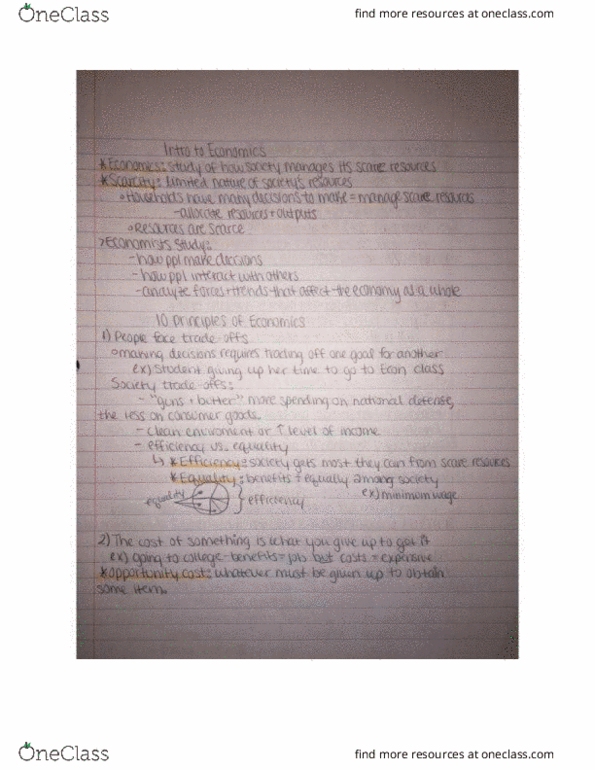 OneClass find more resources at oneclass.com
Intro to Economics
*Economics: study of how society manages its scare resources
*Scarcity: limited nature of society's resources
◦Households have many decisions to make = manage scare resources
-allocate resources + outputs
◦Resources are scarce
>Economists Study:
-how ppl make decisions
-how ppl interact with others
-analyze forces + trends that affect the economy as a whole
10 Principles of Economics
1) People face trade-offs
◦making decisions requires trading off one goal for another
ex) Student giving up her time to go to Econ class
Society trade-offs:
- "guns + butter" more spending on national defense,
the less on consumer goods.
- clean enviroment or ↑ level of income
- efficiency vs. equality
↳ *Efficiency: society gets most they can from scare resources
*Equality: benefits = equally among society
equality } efficiency ex) minimum wage
2) The cost of something is what you give up to get it
ex) going to college - benefits = job but costs = expensive
*opportunity cost: whatever must be given up to obtain
some item.
OneClass find more resources at oneclass.com